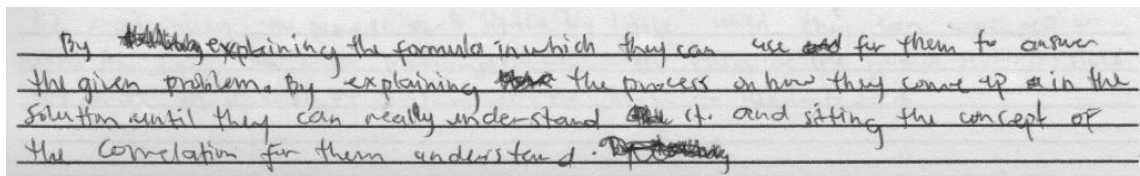 By explaining the formula in which they can use for them to answer
the given problem. By explaining the process on how they come up in the
solution until they can really understand it. and sitting the concept of
the correlation for them understand.